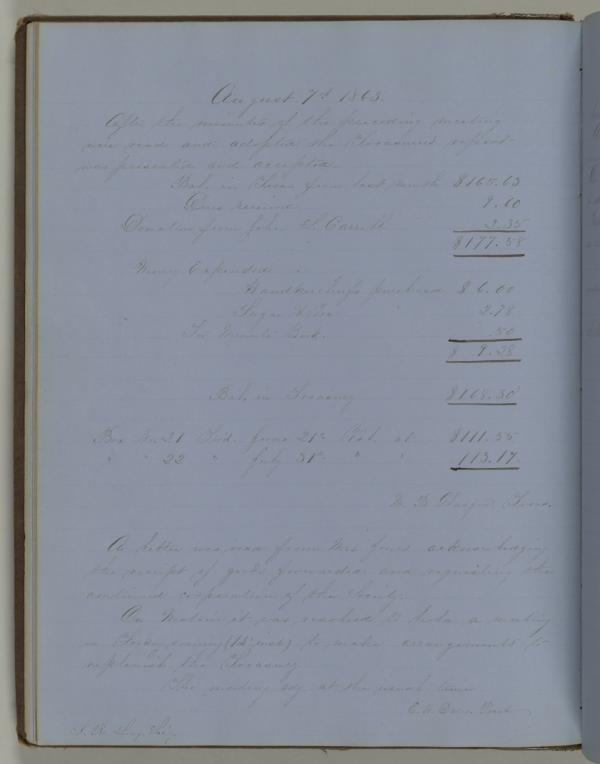 August 7th 1863.
After the minutes of the preceding meeting
were read and adopted the Treasurers report
was presented and accepted.
Bal. in Treas from last month $165.63
Dues received 9.60
Donation from John S. Carroll 2.35
$177.58
Money Expended
Handkerchiefs purchased $6.00
Sugar & Tea " 2.78
For Minute Book. .50
$ 9.28
Bal. in Treasury $168.30
Box No. 21 Fwd. June 21st Val. at $111.55
" " 22 " July 31st " " 113.17
Treas.
A letter was read from Mrs Jones acknowledging
the receipt of goods forwarded and requesting the
continued cooperation of the Society.
On Motion it was resolved to hold a meeting
on Friday evening (14 inst) to make arrangements to
replenish the Treasury
The meeting adj at the usual time
Sec'y